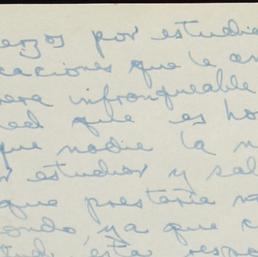 erzos por estudia
caciones que le an
era infranqueable
ed que es ho
que nadie la n
r estudiar y sal
que prestaria
ondo, ya que c
tud, esta respo